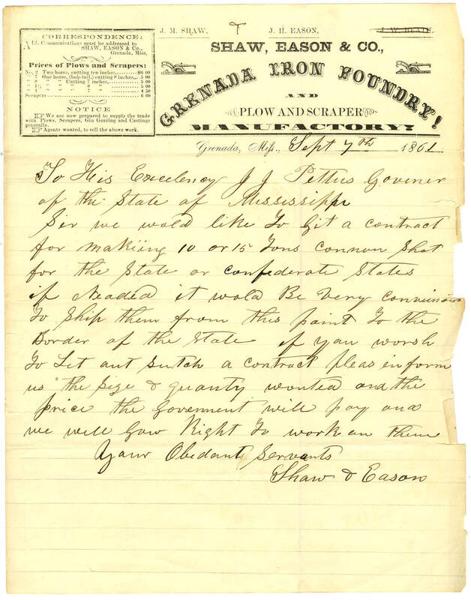 CORRESPONDENCE:
All Communications must be addressed to
SHAW, EASON & CO.,
Grenada, Miss.
Prices of Plows and Scrapers:
NOTICE
We are now prepared to supply the trade
with Plows, Scrapers, Gin Gearing and Castings
generally.
Agents wanted, to sell the above work.
J. M. SHAW, J. H. EASON,
SHAW, EASON & CO.,
GRENADA IRON FOUNDRY!
AND
PLOW AND SCRAPER
MANUFACTORY!
Grenada, Miss., Sept 7th 1861
To His Excelency J J Pettus Govener
of the State of Mississippi
Sir we wold like to git a contract
for making 10 or 15 Tons connon Shot
for the State or confederate States
if Neaded it wold Be very
To Ship them from this point to the
Border of the State if you worsh
To Let out sutch a contract pleas inform
us the Size & quanty wonted and the
price the Goverment will pay and
we will Gow Right To work on them
Your Obedant Servants
Shaw & Eason